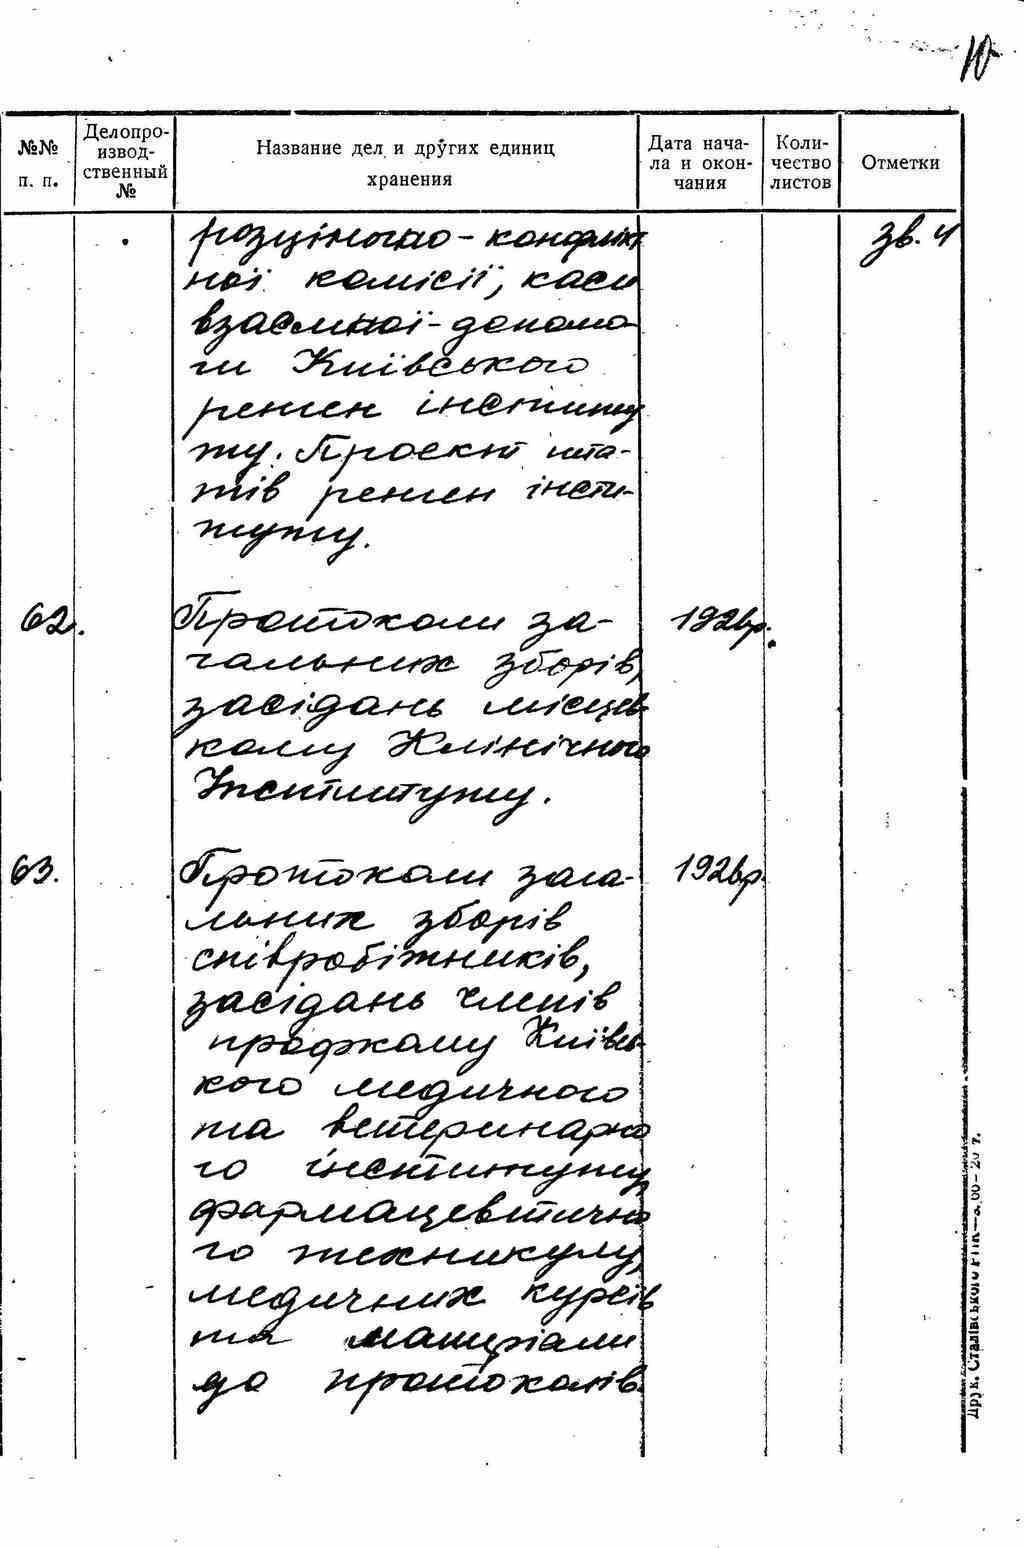 10
№№ п. п.
Делопро-
извод-
ственный
№
Название дел и других единиц
хранения
Дата нача-
ла и окон-
чания
Коли-
чество
листов
Отметки
розціночно-конфлікт
ної комісії, каси
взаємної-допомо-
ги Київського
рентген інститу
ту. Проект шта-
тів рентген інсти-
туту.
62. Протоколи за- 1926р.
гальних зборів,
засідань місцев
кому Клінічного
Інституту.
63. Протоколи зага- 1926р.
льних зборів
співробітників,
засідань членів
профкому Київсь-
кого медичного
та ветеринарно
го інституту,
фармацевтично
го технікуму,
медичних курсів
та матеріали
до протоколів.
Друк. Сталінського